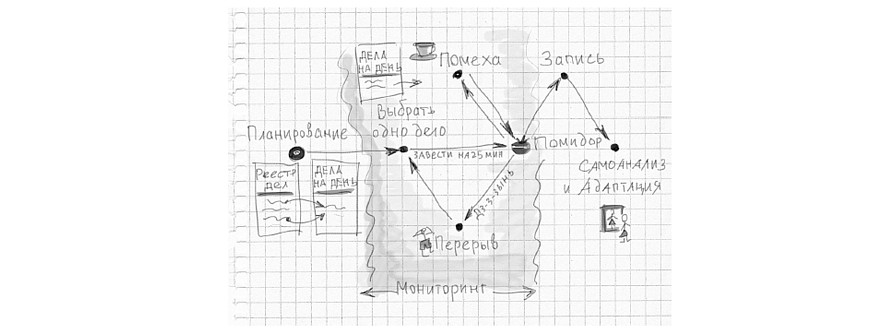 ДЕЛА
НА ДЕНЬ
Помеха
Запись
Выбрать
одно дело
Планирование
ЗАВЕСТИ НА 25 МИН
Помидор
Реестр
дел
ДЕЛА
НА ДЕНЬ
САМОАНАЛИЗ
и АДАПТАЦИЯ
Дз-з-зынь
Перерыв
Мониторинг